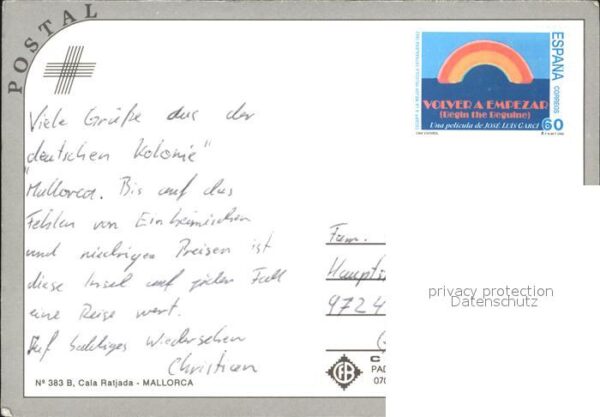 POSTAL
Viele Grüße aus der
deutschen Kolonie"
"Mallorca. Bis auf das
Fehlen von Einheimischen
und niedrigen Preisen ist
diese Insel auf jeden Fall
eine Reise wert.
Auf baldiges Wiedersehen
Christian
Nº 383 B, Cala Ratjada - MALLORCA
ESPAÑA
CORREOS
VOLVER A EMPEZAR
(Begin the Beguine)
Una película de JOSÉ LUIS GARCI
60
Fam.
Haupts
9724
privacy protection
Datenschutz
PAD
070